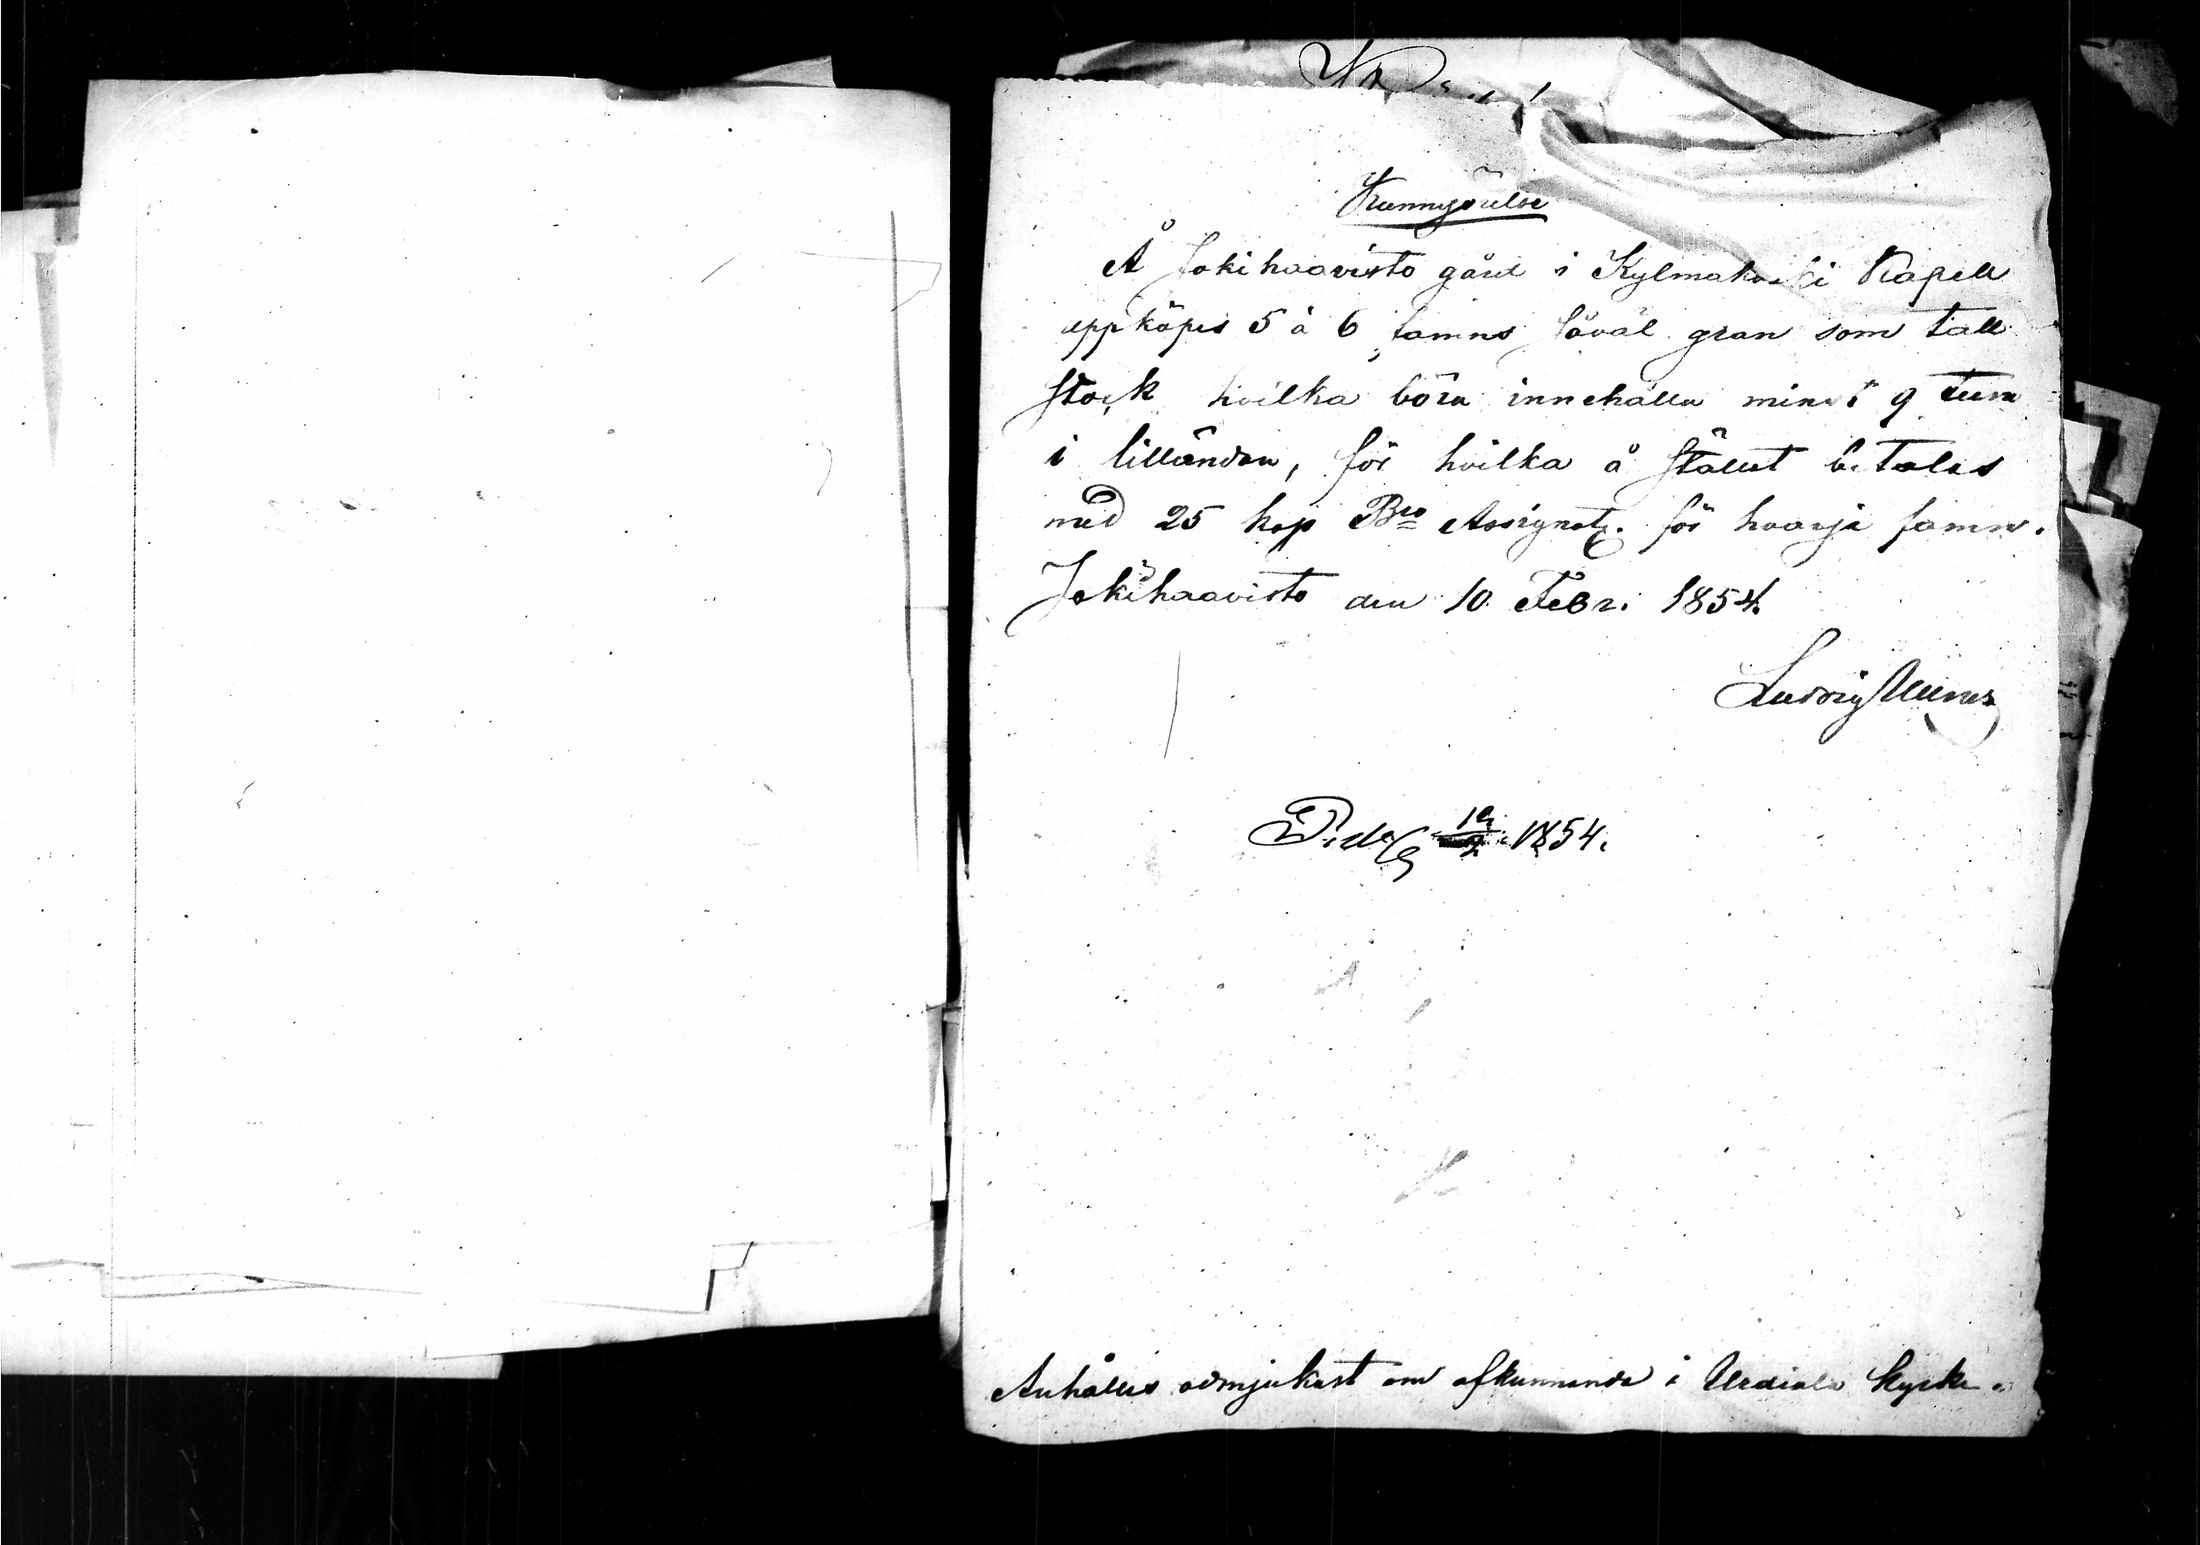 Kunngörelse
Å Jokihaavisto gård i Kylmäkoski Kapell
uppköpes 5 à 6 famns såväl gran som tall
stock hvilka böra innehålla minst 9 tum
i lilländan, för hvilka å stället betales
med 25 kop Bco Assignat. för hvarje famn.
Jokihaavisto den 10 Febr. 1854.
Ludvig
1854.
Anhålles ödmjukast om afkunnande i Urdiala kyrka.